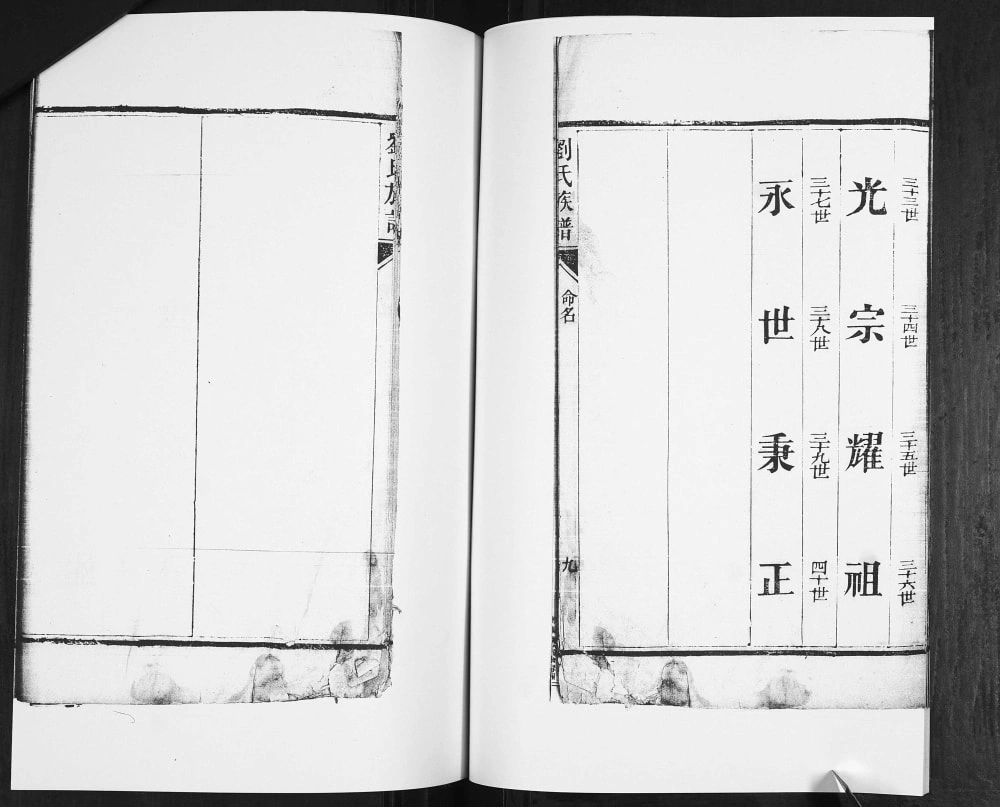 三十三世 三十四世 三十五世 三十六世
光宗耀祖
三十七世 三十八世 三十九世 四十世
永世秉正
劉氏族譜 命名 九
劉氏族譜